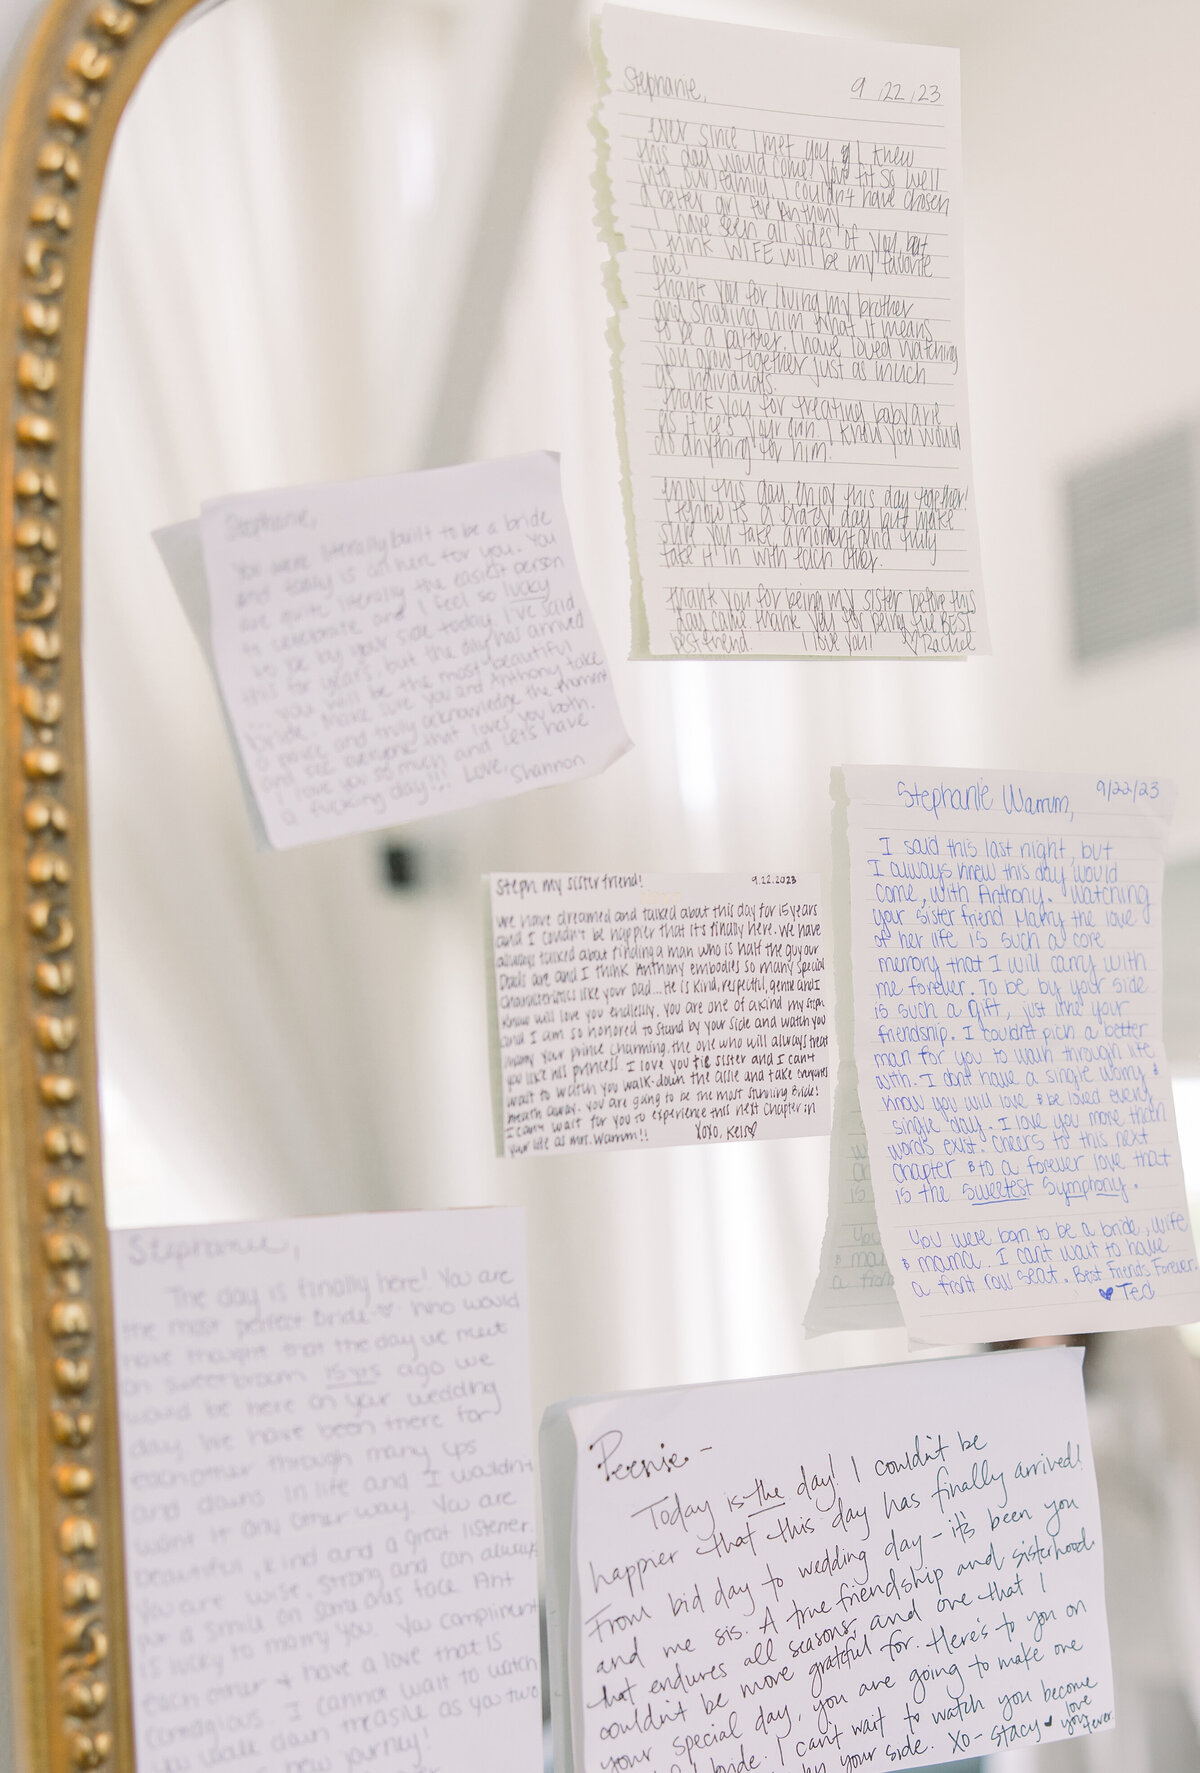 Stephanie,
9/22/23
ever since I met you, I knew
this day would come! You fit so well
into our family, I couldn't have chosen
a better girl for Anthony.
I have seen all sides of you, but
I think WIFE will be my favorite
one!
thank you for loving my brother
and showing him what it means
to be a partner. I have loved watching
you grow together just as much
as individuals.
thank you for treating baby
as if he's your own. I know you would
do anything for him.
enjoy this day, enjoy this day together!
I know its a crazy day but make
sure you take a moment and truly
take it in with each other.
thank you for being my sister before this
day came. thank you for being the BEST
best friend. I love you! ♡ Rachel
Stephanie,
You were literally built to be a bride
and today is all here for you. You
are quite literally the easiest person
to celebrate and I feel so lucky
to be by your side today. I've said
this for years, but the day has arrived
... you will be the most beautiful
bride. Make sure you and Anthony take
a pause and truly acknowledge the moment
and see everyone that loves you both.
I love you so much and let's have
a fucking day!!! Love, Shannon
Steph my sister friend!
9.22.2023
We have dreamed and talked about this day for 15 years
and I couldn't be happier that it's finally here. We have
always talked about finding a man who is half the guy our
Dads are and I think Anthony embodies so many special
characteristics like your Dad... He is kind, respectful, genuine and I
know will love you endlessly. You are one of a kind my Steph
and I am so honored to stand by your side and watch you
marry your prince charming, the one who will always treat
you like his princess. I love you sister and I can't
wait to watch you walk down the aisle and take everyones
breath away. You are going to be the most stunning Bride!
I can't wait for you to experience this next chapter in
your life as Mrs. Wamm!! XOXO, Kels♡
Stephanie Wamm,
9/22/23
I said this last night, but
I always knew this day would
come, with Anthony. Watching
your sister friend Marry the love
of her life is such a core
memory that I will carry with
me forever. To be by your side
is such a gift, just like your
friendship. I couldn't pick a better
man for you to walk through life
with. I don't have a single worry &
know you will love & be loved every
single day. I love you more than
words exist. Cheers to this next
chapter & to a forever love that
is the sweetest symphony.
You were born to be a bride, wife
& mama. I cant wait to have
a front row seat. Best Friends Forever.
♥ Ted
Stephanie,
The day is finally here! You are
the most perfect Bride ♡ who would
have thought that the day we meet
on sweetbroom 15 yrs ago we
would be here on your wedding
day. We have been there for
eachother through many ups
and downs in life and I wouldn't
want it any other way. You are
beautiful, kind and a great listener.
You are wise, strong and can always
put a smile on someones face. Ant
is lucky to marry you. You compliment
each other & have a love that is
contagious. I cannot wait to watch
you walk down the aisle as you two
new journey!
Peenie-
Today is the day! I couldn't be
happier that this day has finally arrived!
From bid day to wedding day - it's been you
and me sis. A true friendship and sisterhood
that endures all seasons, and one that I
couldn't be more grateful for. Here's to you on
your special day, you are going to make one
bride. I can't wait to watch you become
by your side. Xo- Stacy ♥ love you 4ever